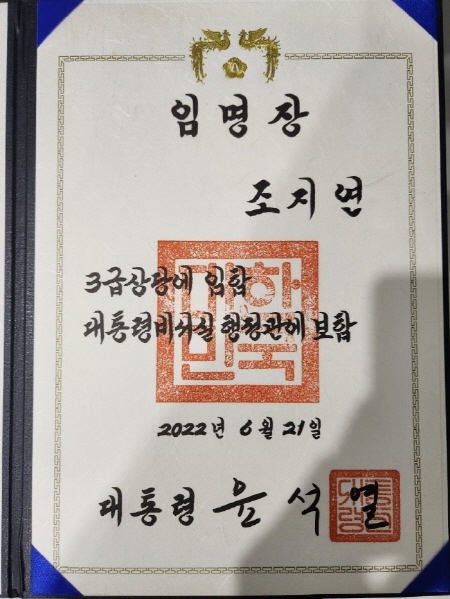 임명장
조지연
3급상당에 임함
대통령비서실 행정관에 보함
대한민국
2022년 6월 21일
대통령 윤석열